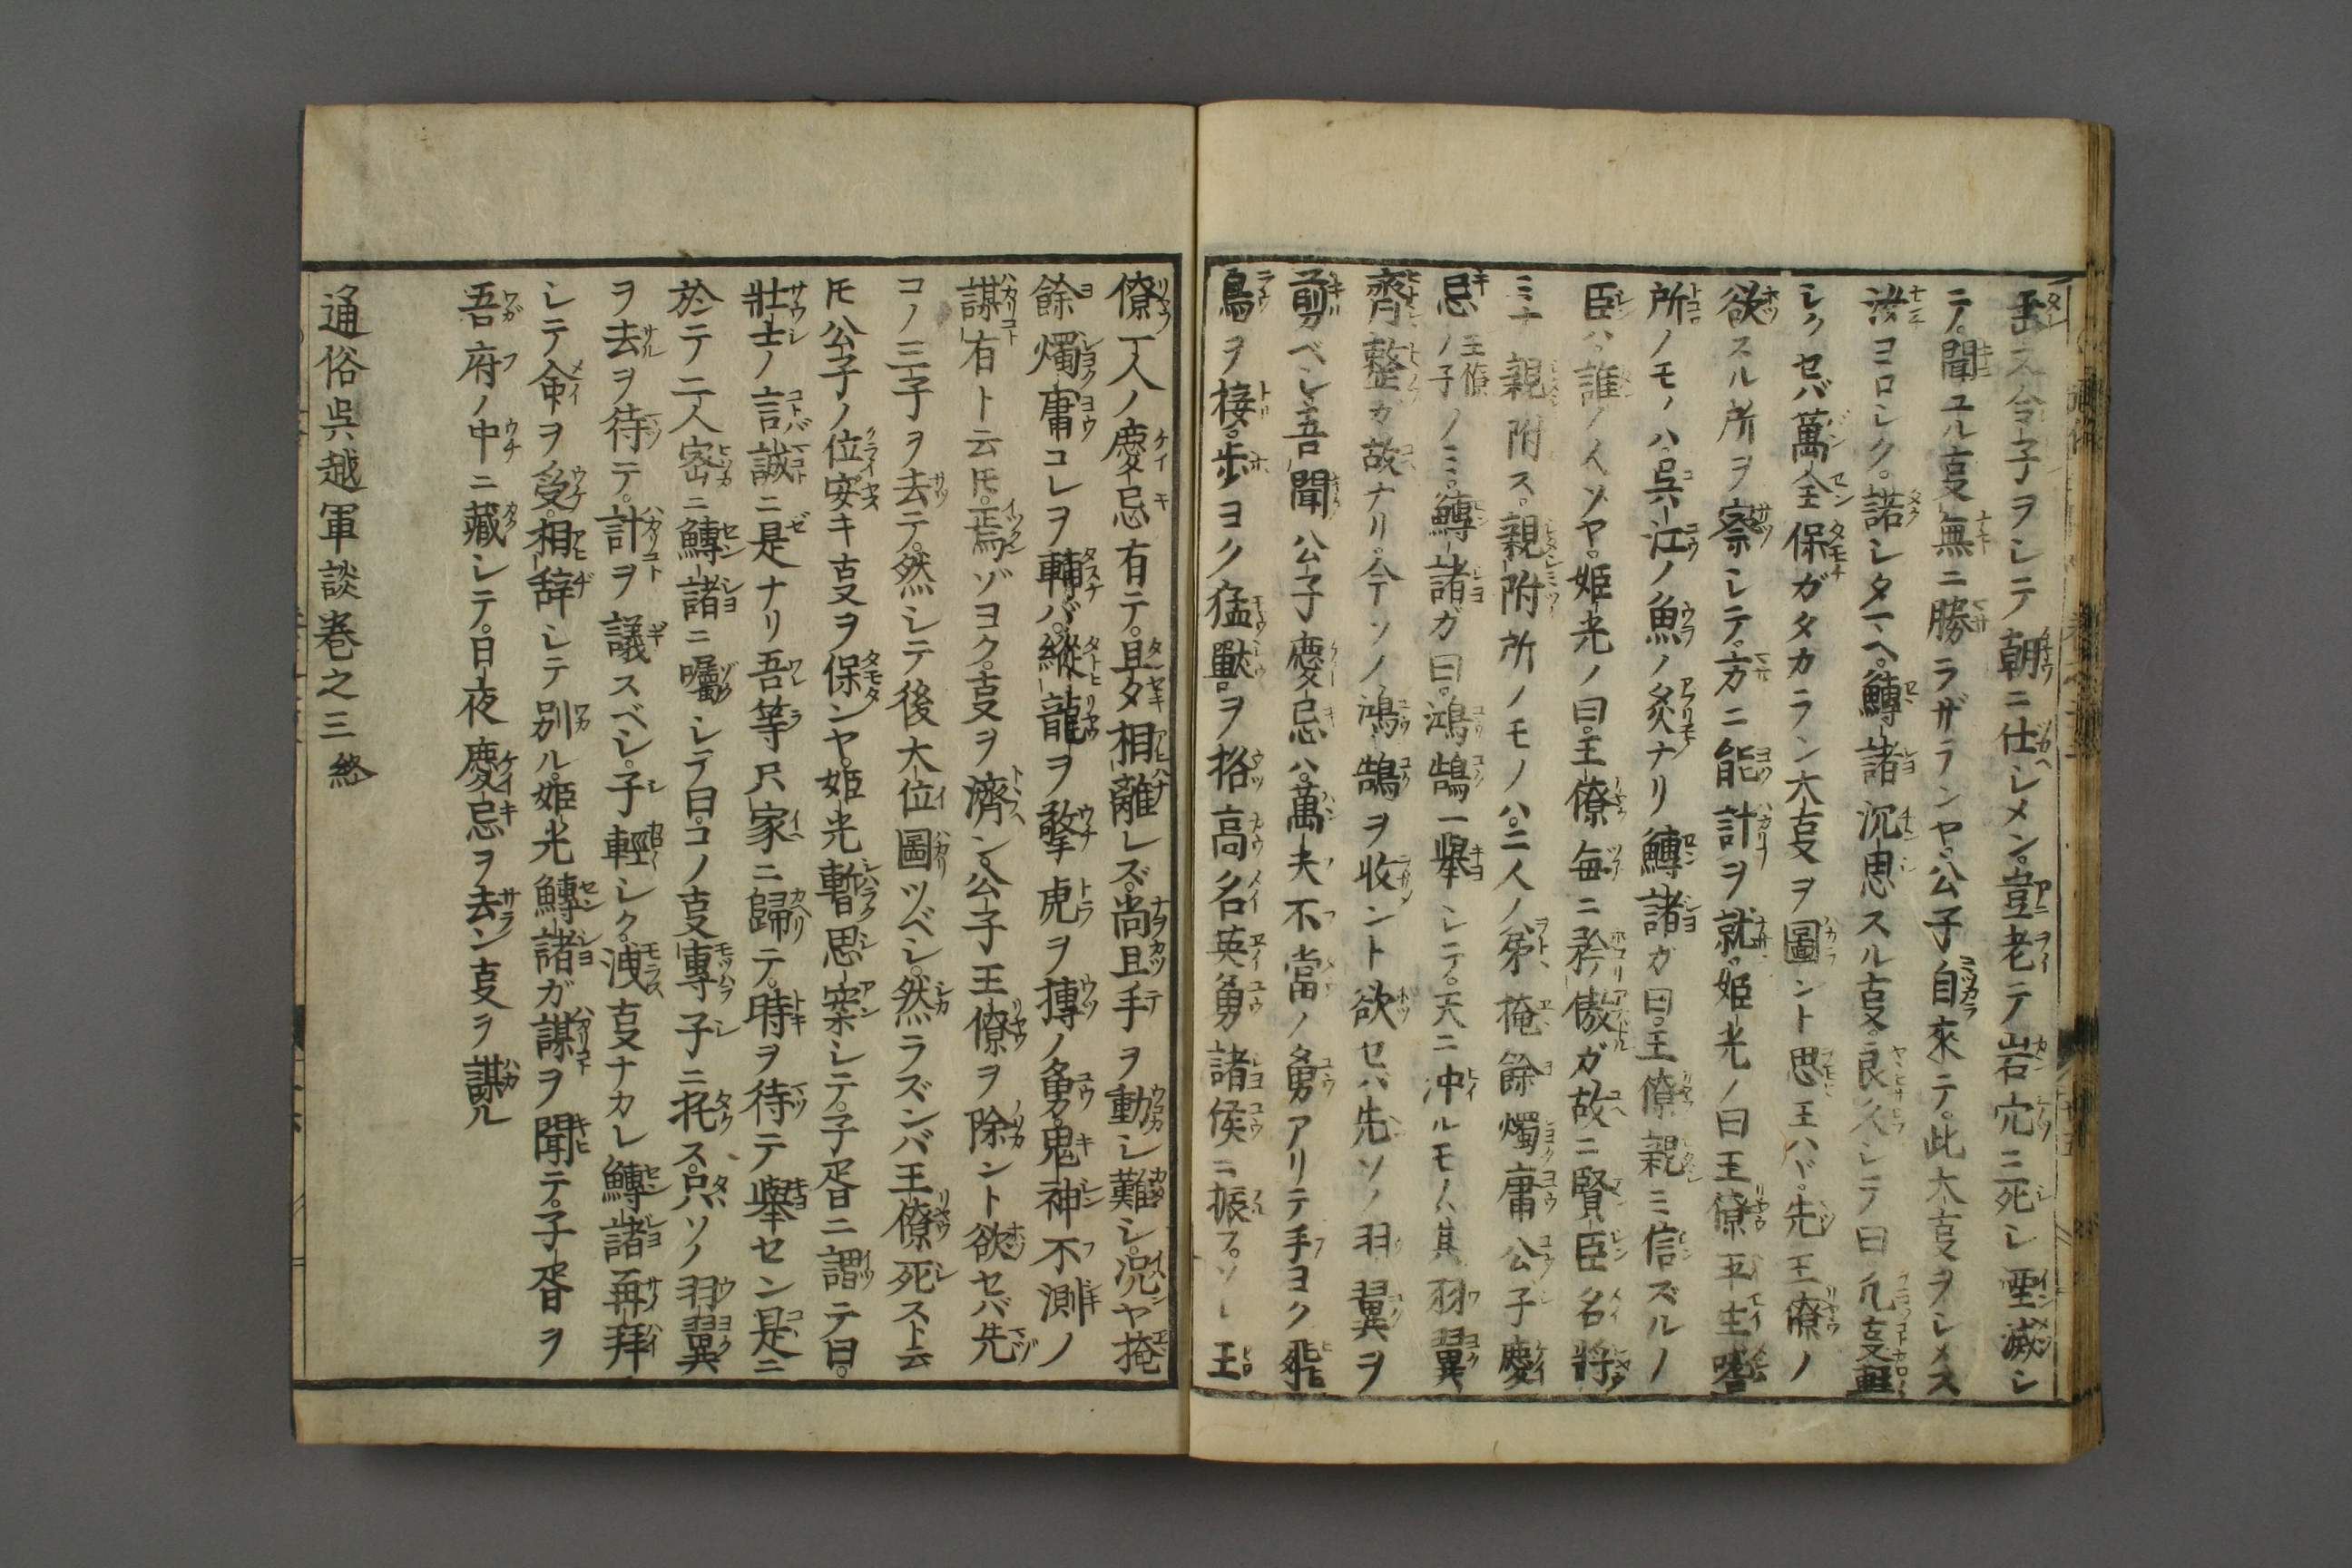 ヲシテ朝ニ仕シメン。豈老テ岩穴ニ死シ堙滅シ
テ。聞ユル事無ニ勝ラザランヤ。公子自來テ。此大事ヲシメス
ヨロシク。諾シタマヘ。鱄諸沉思スル事。良久シテ曰凡事輕
シクセバ萬全保ガタカラン大事ヲ圖ント思王ハヾ。先王僚ノ
欲スル所ヲ察シテ。方ニ能計ヲ就。姫光ノ曰王僚平生嗜
所ノモノハ。呉江ノ魚ノ炙ナリ鱄諸ガ曰。王僚親ミ信ズルノ
臣ハ。誰ノ人ゾヤ。姫光ノ曰。王僚毎ニ矜傲ガ故ニ賢臣名將
ミナ親附ス。親附所ノモノハ。二人ノ弟掩餘燭庸公子慶
忌王僚ノ子ノミ。鱄諸ガ曰。鴻鵠一擧シテ。天ニ冲ルモノハ其羽翼
齊整カ故ナリ。今ソノ鴻鵠ヲ收ント欲セバ先ソノ羽翼ヲ
剪ベシ吾聞公子慶忌ハ。萬夫不當ノ勇アリテ手ヨク飛
鳥ヲ接。歩ヨク猛獸ヲ格高名英勇諸侯ニ振フ。ソレ王
僚一人ノ慶忌有テ。旦夕相離レズ。尚且手ヲ動シ難シ。況ヤ掩
餘燭庸コレヲ輔バ。縱龍ヲ擎虎ヲ摶ノ勇。鬼神不測ノ
謀有ト云𪜈。焉ゾヨク。事ヲ濟ン。公子王僚ヲ除ント欲セバ先
コノ三子ヲ去テ。然シテ後大位圖ツベシ。然ラズンバ王僚死スト云
𪜈公子ノ位安キ事ヲ保ンヤ。姫光暫思案シテ。子胥ニ謂テ曰。
壯士ノ言誠ニ是ナリ吾等只家ニ歸テ。時ヲ待テ擧セン是ニ
於テ二人密ニ鱄諸ニ囑シテ曰。コノ事專子ニ托ス。只ソノ羽翼
ヲ去ヲ待テ。計ヲ議スベシ。子輕シク。洩事ナカレ鱄諸再拜
シテ命ヲ受。相辞シテ別ル。姫光鱄諸ガ謀ヲ聞テ。子胥ヲ
吾府ノ中ニ藏シテ。日夜慶忌ヲ去ン事ヲ謀ル
通俗呉越軍談巻之三終